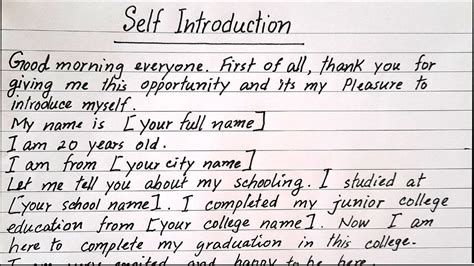 Self Introduction
Good morning everyone. First of all, thank you for
giving me this opportunity and its my Pleasure to
introduce myself.
My name is [your full name]
I am 20 years old.
I am from [your city name]
Let me tell you about my schooling. I studied at
[your school name]. I completed my junior college
education from [your college name]. Now I am
here to complete my graduation in this college.
I am very excited and happy to be here.